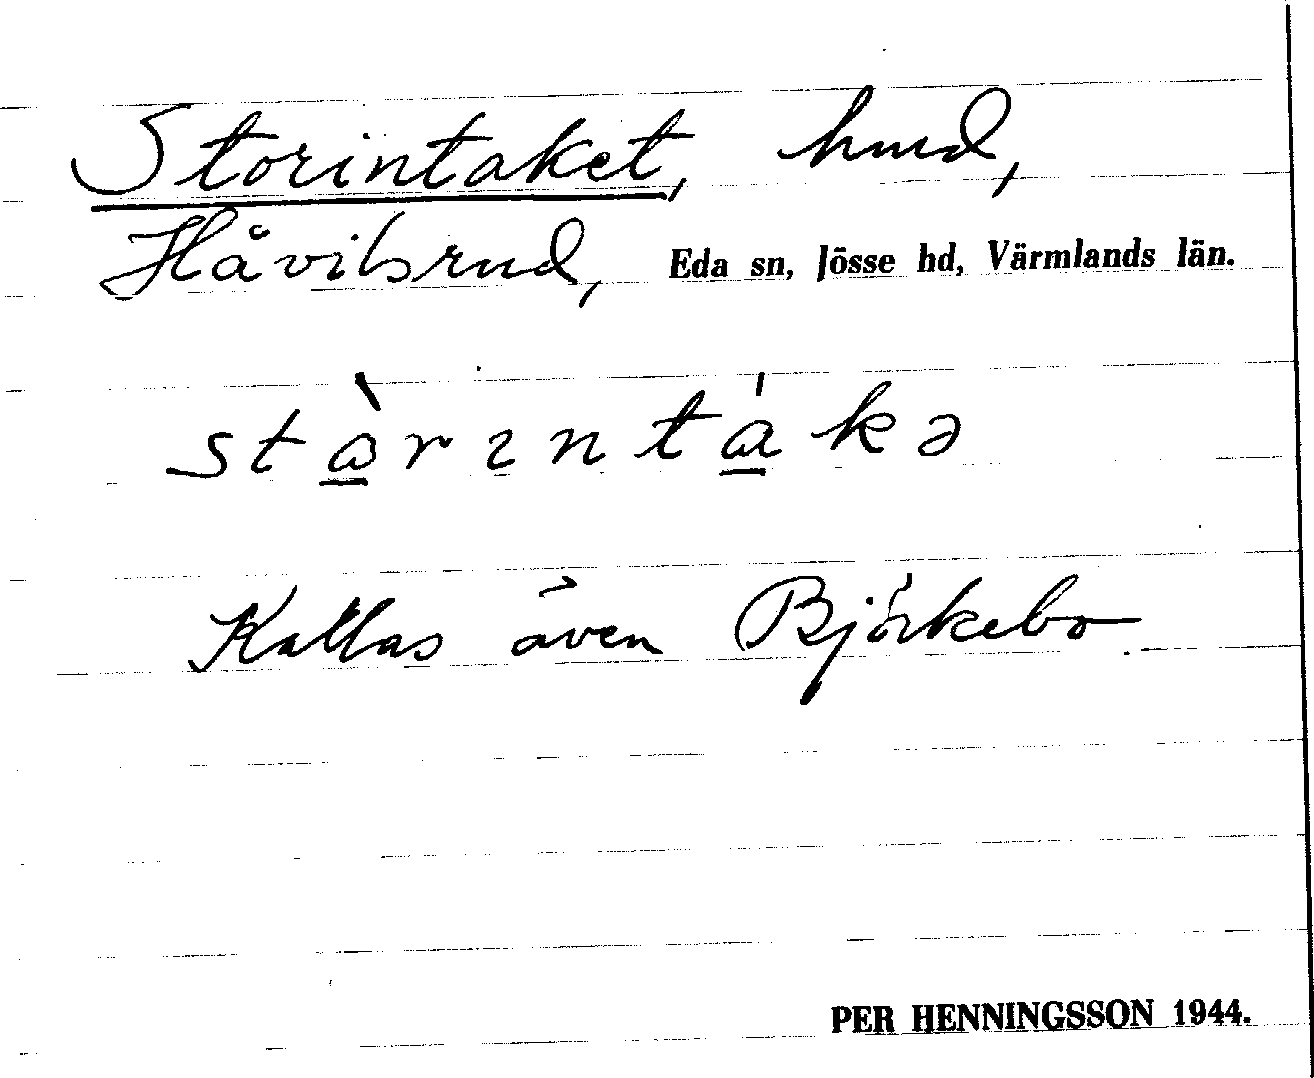 Storintaket, hmd,
Håvilsrud, Eda sn, Jösse hd, Värmlands län.
stàrıntákə
Kallas även Björkebo
PER HENNINGSSON 1944.